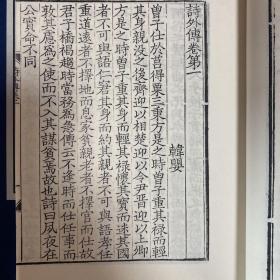 詩外傳卷第一
韓嬰
曾子仕於莒得粟三秉方是之時曾子重其祿而輕
其身親沒之後齊迎以相楚迎以令尹晉迎以上卿
方是之時曾子重其身而輕其祿懷其寶而迷其國
者不可與語仁窘其身而約其親者不可與語孝任
重道遠者不擇地而息家貧親老者不擇官而仕故
君子橋褐趨時當務為急傳云不逢時而仕任事而
敦其慮為之使而不入其謀貧焉故也詩曰夙夜在
公實命不同